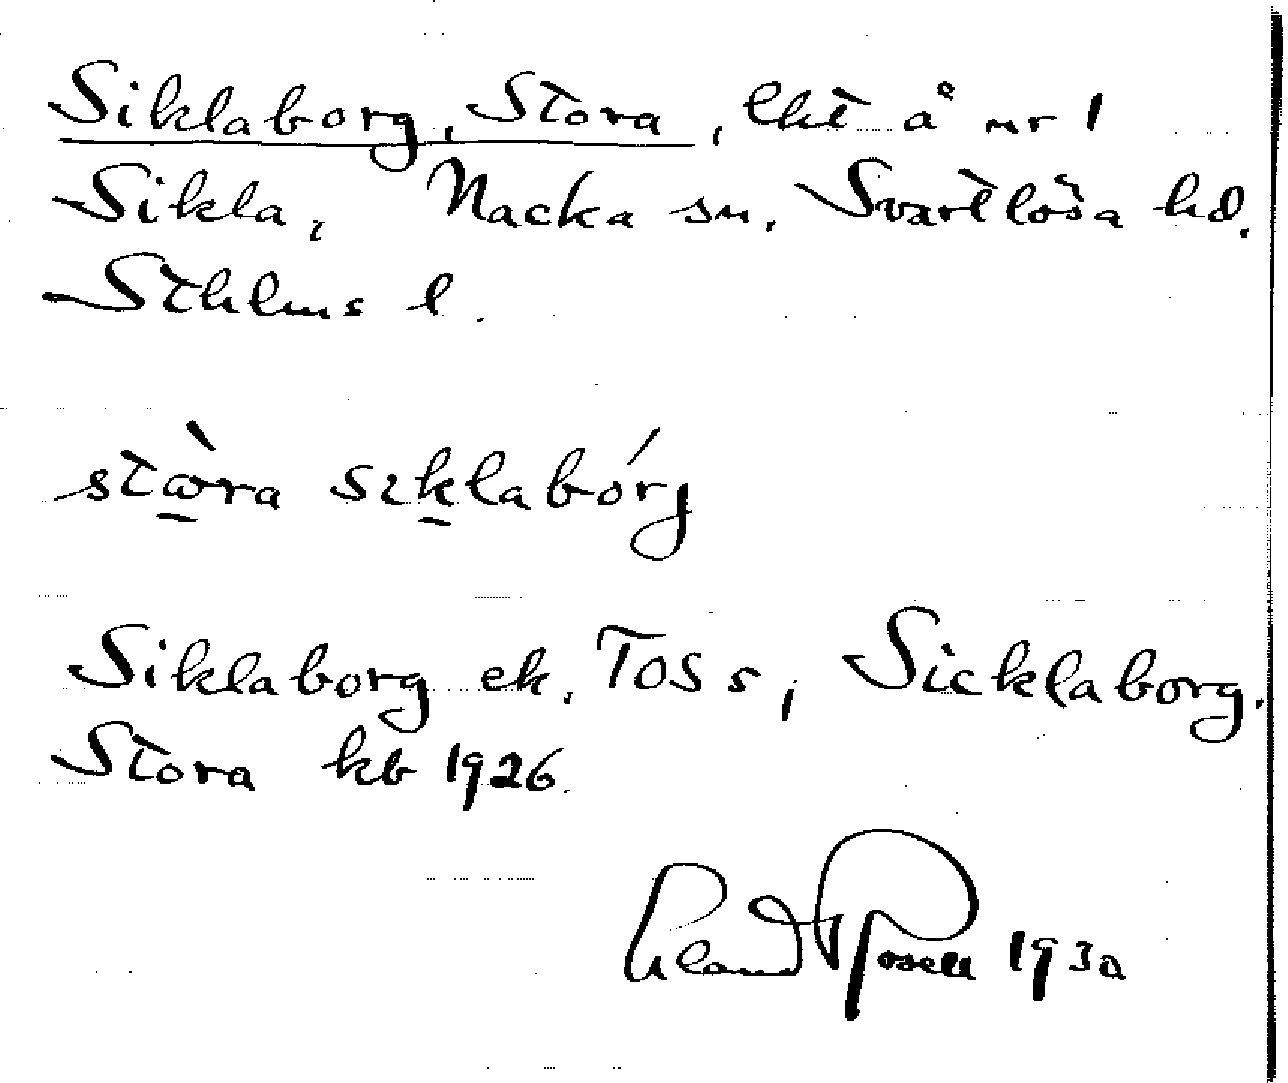 Siklaborg, Stora, lht å nr 1
Sikla, Nacka sn, Svartlösa hd.
Sthlms l.
stɷ̀ra sɩklabórg
Siklaborg ek. Tos s, Sicklaborg.
Stora kb 1926.
1930